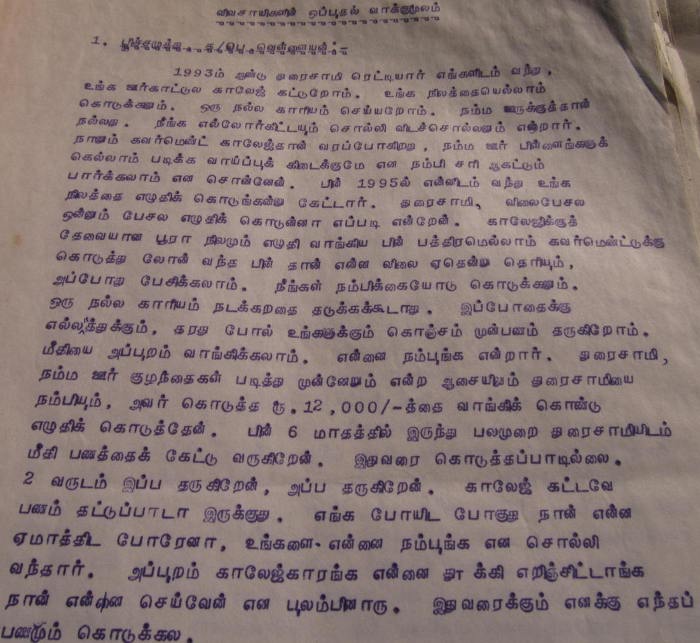 விவசாயிகளின் ஒப்புதல் வாக்குமூலம்
1.
1993ம் ஆண்டு துரைசாமி ரெட்டியார் எங்களிடம் வந்து,
உங்க ஊர்காட்டுல காலேஜ் கட்டுறோம். உங்க நிலத்தையெல்லாம்
கொடுக்கணும். ஒரு நல்ல காரியம் செய்யறோம். நம்ம ஊருக்குத்தான்
நல்லது. நீங்க எல்லோர்கிட்டயும் சொல்லி விடச்சொல்லணும் என்றார்.
நானும் கவர்மெண்ட் காலேஜ்தான் வரப்போகிறது, நம்ம ஊர் பிள்ளைங்களுக்
கெல்லாம் படிக்க வாய்ப்புக் கிடைக்குமே என நம்பி சரி ஆகட்டும்
பார்க்கலாம் என சொன்னேன். பின் 1995ல் என்னிடம் வந்து உங்க
நிலத்தை எழுதிக் கொடுங்கன்னு கேட்டார். துரைசாமி, விலைபேசல
ஒன்னும் பேசல எழுதிக் கொடுன்னா எப்படி என்றேன். காலேஜிக்குத்
தேவையான பூரா நிலமும் எழுதி வாங்கிய பின் பத்திரமெல்லாம் கவர்மென்ட்டுக்கு
கொடுத்து லோன் வந்த பின் தான் என்ன விலை ஏதென்று தெரியும்,
அப்போது பேசிக்கலாம். நீங்கள் நம்பிக்கையோடு கொடுக்கணும்.
ஒரு நல்ல காரியம் நடக்கறதை தடுக்கக்கூடாது. இப்போதைக்கு
எல்லாத்துக்கும், தரது போல் உங்களுக்கும் கொஞ்சம் முன்பணம் தருகிறோம்.
மீதியை அப்புறம் வாங்கிக்கலாம். என்னை நம்புங்க என்றார். துரைசாமி,
நம்ம ஊர் குழந்தைகள் படித்து முன்னேறும் என்ற ஆசையிலும் துரைசாமியை
நம்பியும், அவர் கொடுத்த ரூ.12,000/-த்தை வாங்கிக் கொண்டு
எழுதிக் கொடுத்தேன். பின் 6 மாதத்தில் இருந்து பலமுறை துரைசாமியிடம்
மீதி பணத்தைக் கேட்டு வருகிறேன். இதுவரை கொடுத்தப்பாடில்லை.
2 வருடம் இப்ப தருகிறேன், அப்ப தருகிறேன். காலேஜ் கட்டவே
பணம் தட்டுப்பாடா இருக்குது. எங்க போயிட போகுது நான் என்ன
ஏமாத்திட போரேனா, உங்களை-என்னை நம்புங்க என சொல்லி
வந்தார். அப்புறம் காலேஜ்காரங்க என்னை தூக்கி எறிஞ்சிட்டாங்க
நான் என்ன செய்வேன் என புலம்பினாரு. இதுவரைக்கும் எனக்கு எந்தப்
பணமும் கொடுக்கல.